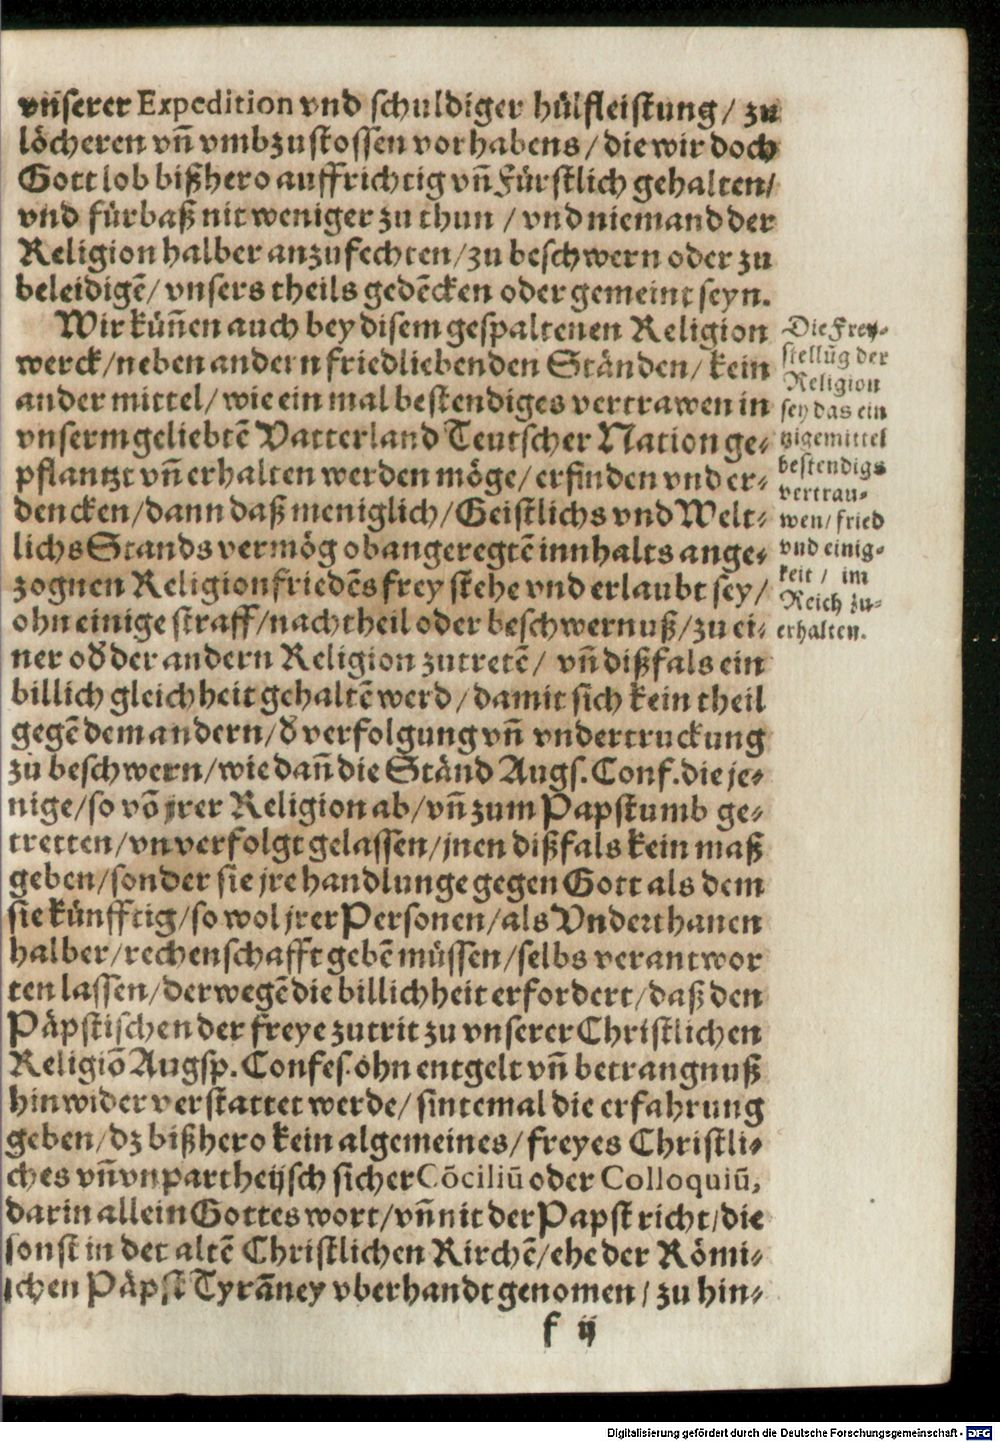 vnserer Expedition vnd schuldiger hülffleistung / zu
löcheren vñ vmbzustossen vorhabens / die wir doch
Gott lob bißhero auffrichtig vñ Fürstlich gehalten /
vnd fürbaß nit weniger zu thun / vnd niemand der
Religion halber anzufechten / zu beschwern oder zu
beleidigẽ / vnsers theils gedẽcken oder gemeint seyn.
Wir küñen auch bey disem gespaltenen Religion
werck / neben andern friedliebenden Ständen / kein
ander mittel / wie ein mal bestendiges vertrawen in
vnserm geliebtẽ Vatterland Teutscher Nation ge-
pflantzt vñ erhalten werden möge / erfinden vnd er-
dencken / dann daß meniglich / Geistlichs vnd Welt-
lichs Stands vermög obangeregtẽ innhalts ange-
zognen Religionfriedẽs frey stehe vnd erlaubt sey /
ohn einige straff / nachtheil oder beschwernuß / zu ei-
ner od̃ der andern Religion zutretẽ / vñ dißfals ein
billich gleichheit gehaltẽ werd / damit sich kein theil
gegẽ dem andern / d̃ verfolgung vñ vndertruckung
zu beschwern / wie dañ die Ständ Augs. Conf. die je-
nige / so võ jrer Religion ab / vñ zum Papstumb ge-
tretten / vnverfolgt gelassen / jnen dißfals kein maß
geben / sonder sie jre handlunge gegen Gott als dem
sie künfftig / so wol jrer Personen / als Vnderthanen
halber / rechenschafft gebẽ müssen / selbs verantwor
ten lassen / derwegẽ die billichheit erfordert / daß den
Päpstischen der freye zutrit zu vnserer Christlichen
Religiõ Augsp. Confes. ohn entgelt vñ betrangnuß
hinwider verstattet werde / sintemal die erfahrung
geben / dz bißhero kein algemeines / freyes Christli-
ches vñ vnpartheijsch sicher Cõciliũ oder Colloquiũ,
darin allein Gottes wort / vñ nit der Papst richt / die
sonst in der altẽ Christlichen Kirchẽ / ehe der Römi-
schen Päpst Tyrãney vberhandt genomen / zu hin-
f ij
Die Frey-
stellũg der
Religion
sey das ein
tzige mittel
bestendigs
vertrau-
wen / fried
vnd einig-
keit / im
Reich zu-
erhalten.
Digitalisierung gefördert durch die Deutsche Forschungsgemeinschaft - DFG